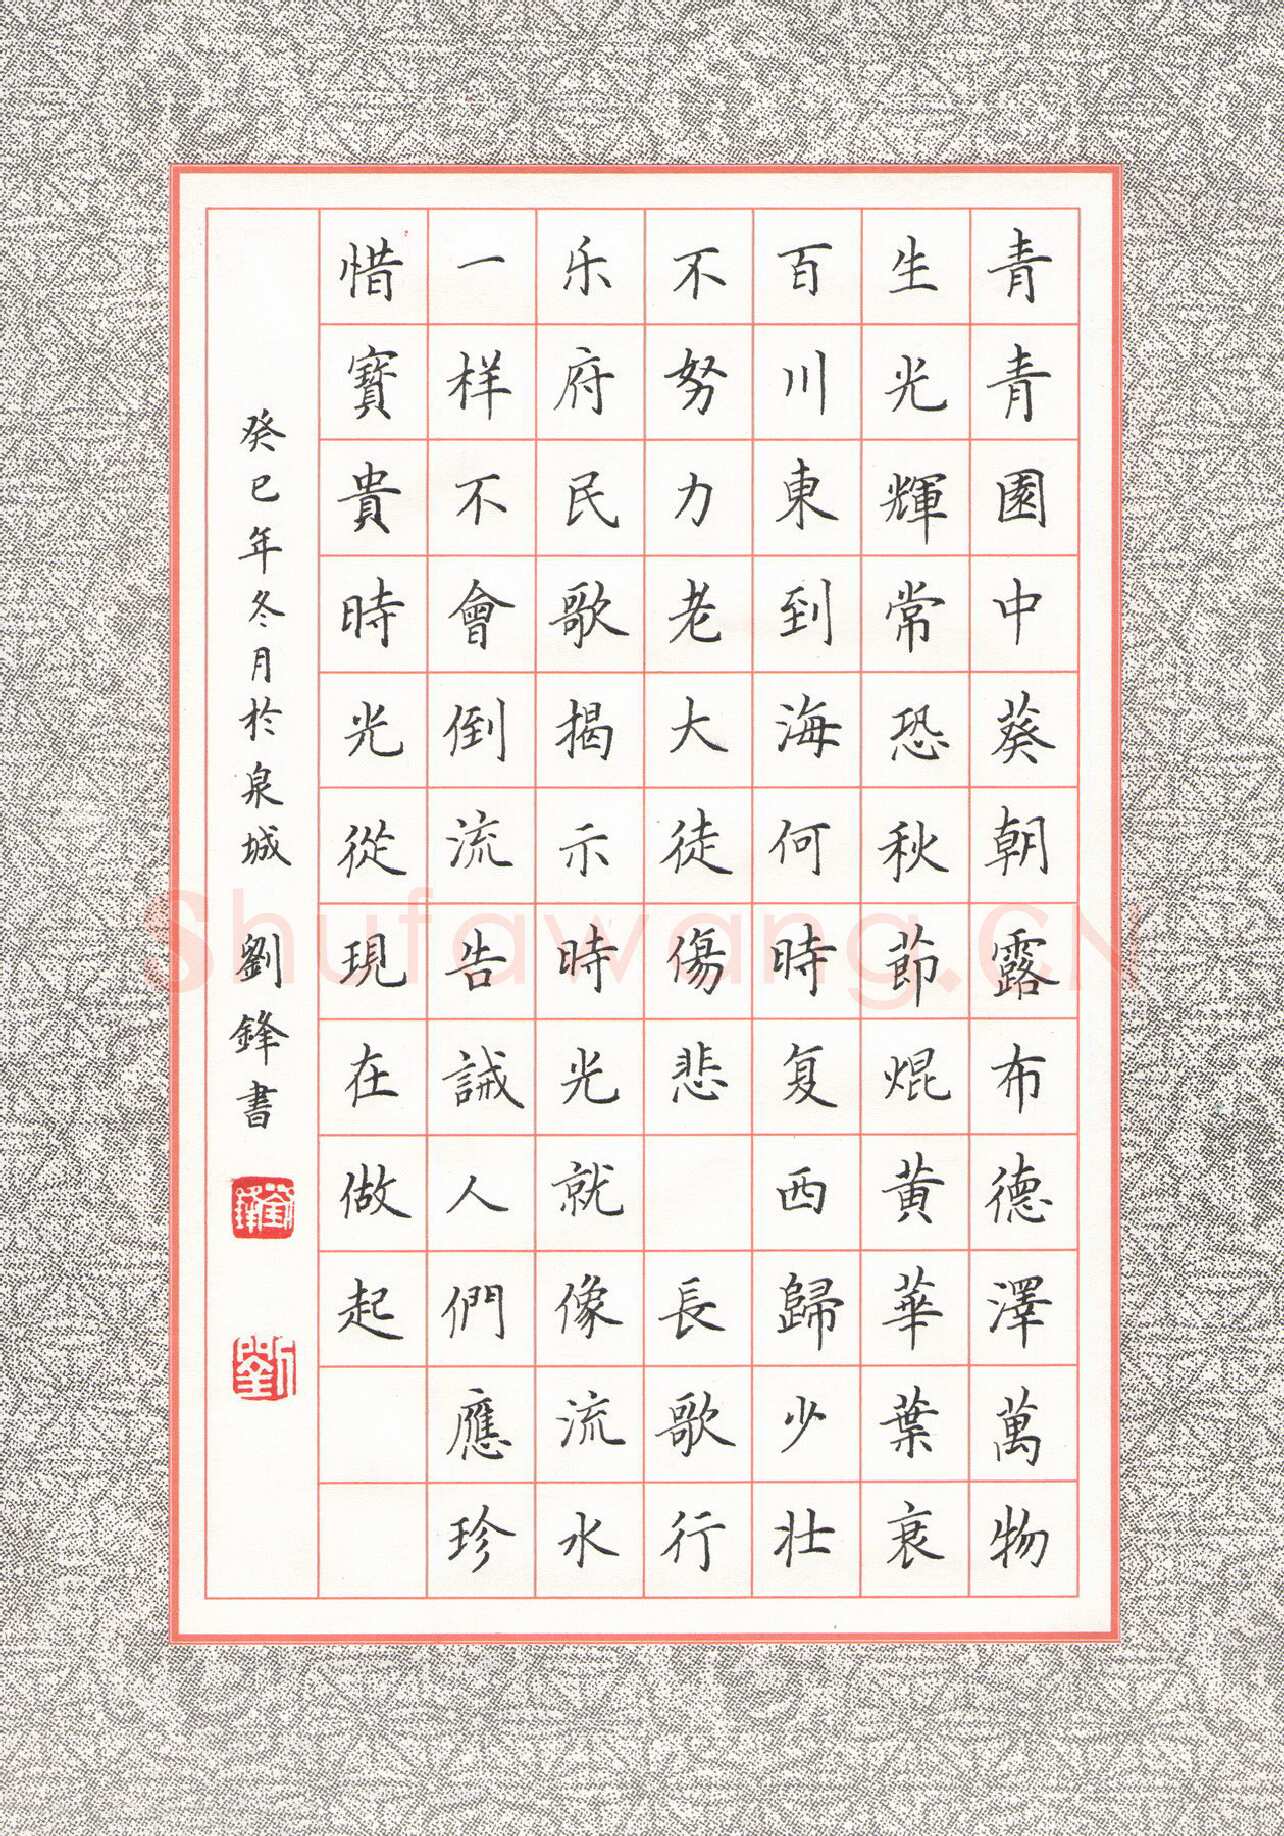 青青園中葵朝露布德澤萬物
生光輝常恐秋節焜黄華葉衰
百川東到海何時复西歸少壯
不努力老大徒傷悲 長歌行
乐府民歌揭示時光就像流水
一样不會倒流告誡人們應珍
惜寶貴時光從現在做起
癸巳年冬月於泉城 劉鋒書
劉鋒
劉
Shufawang.CN